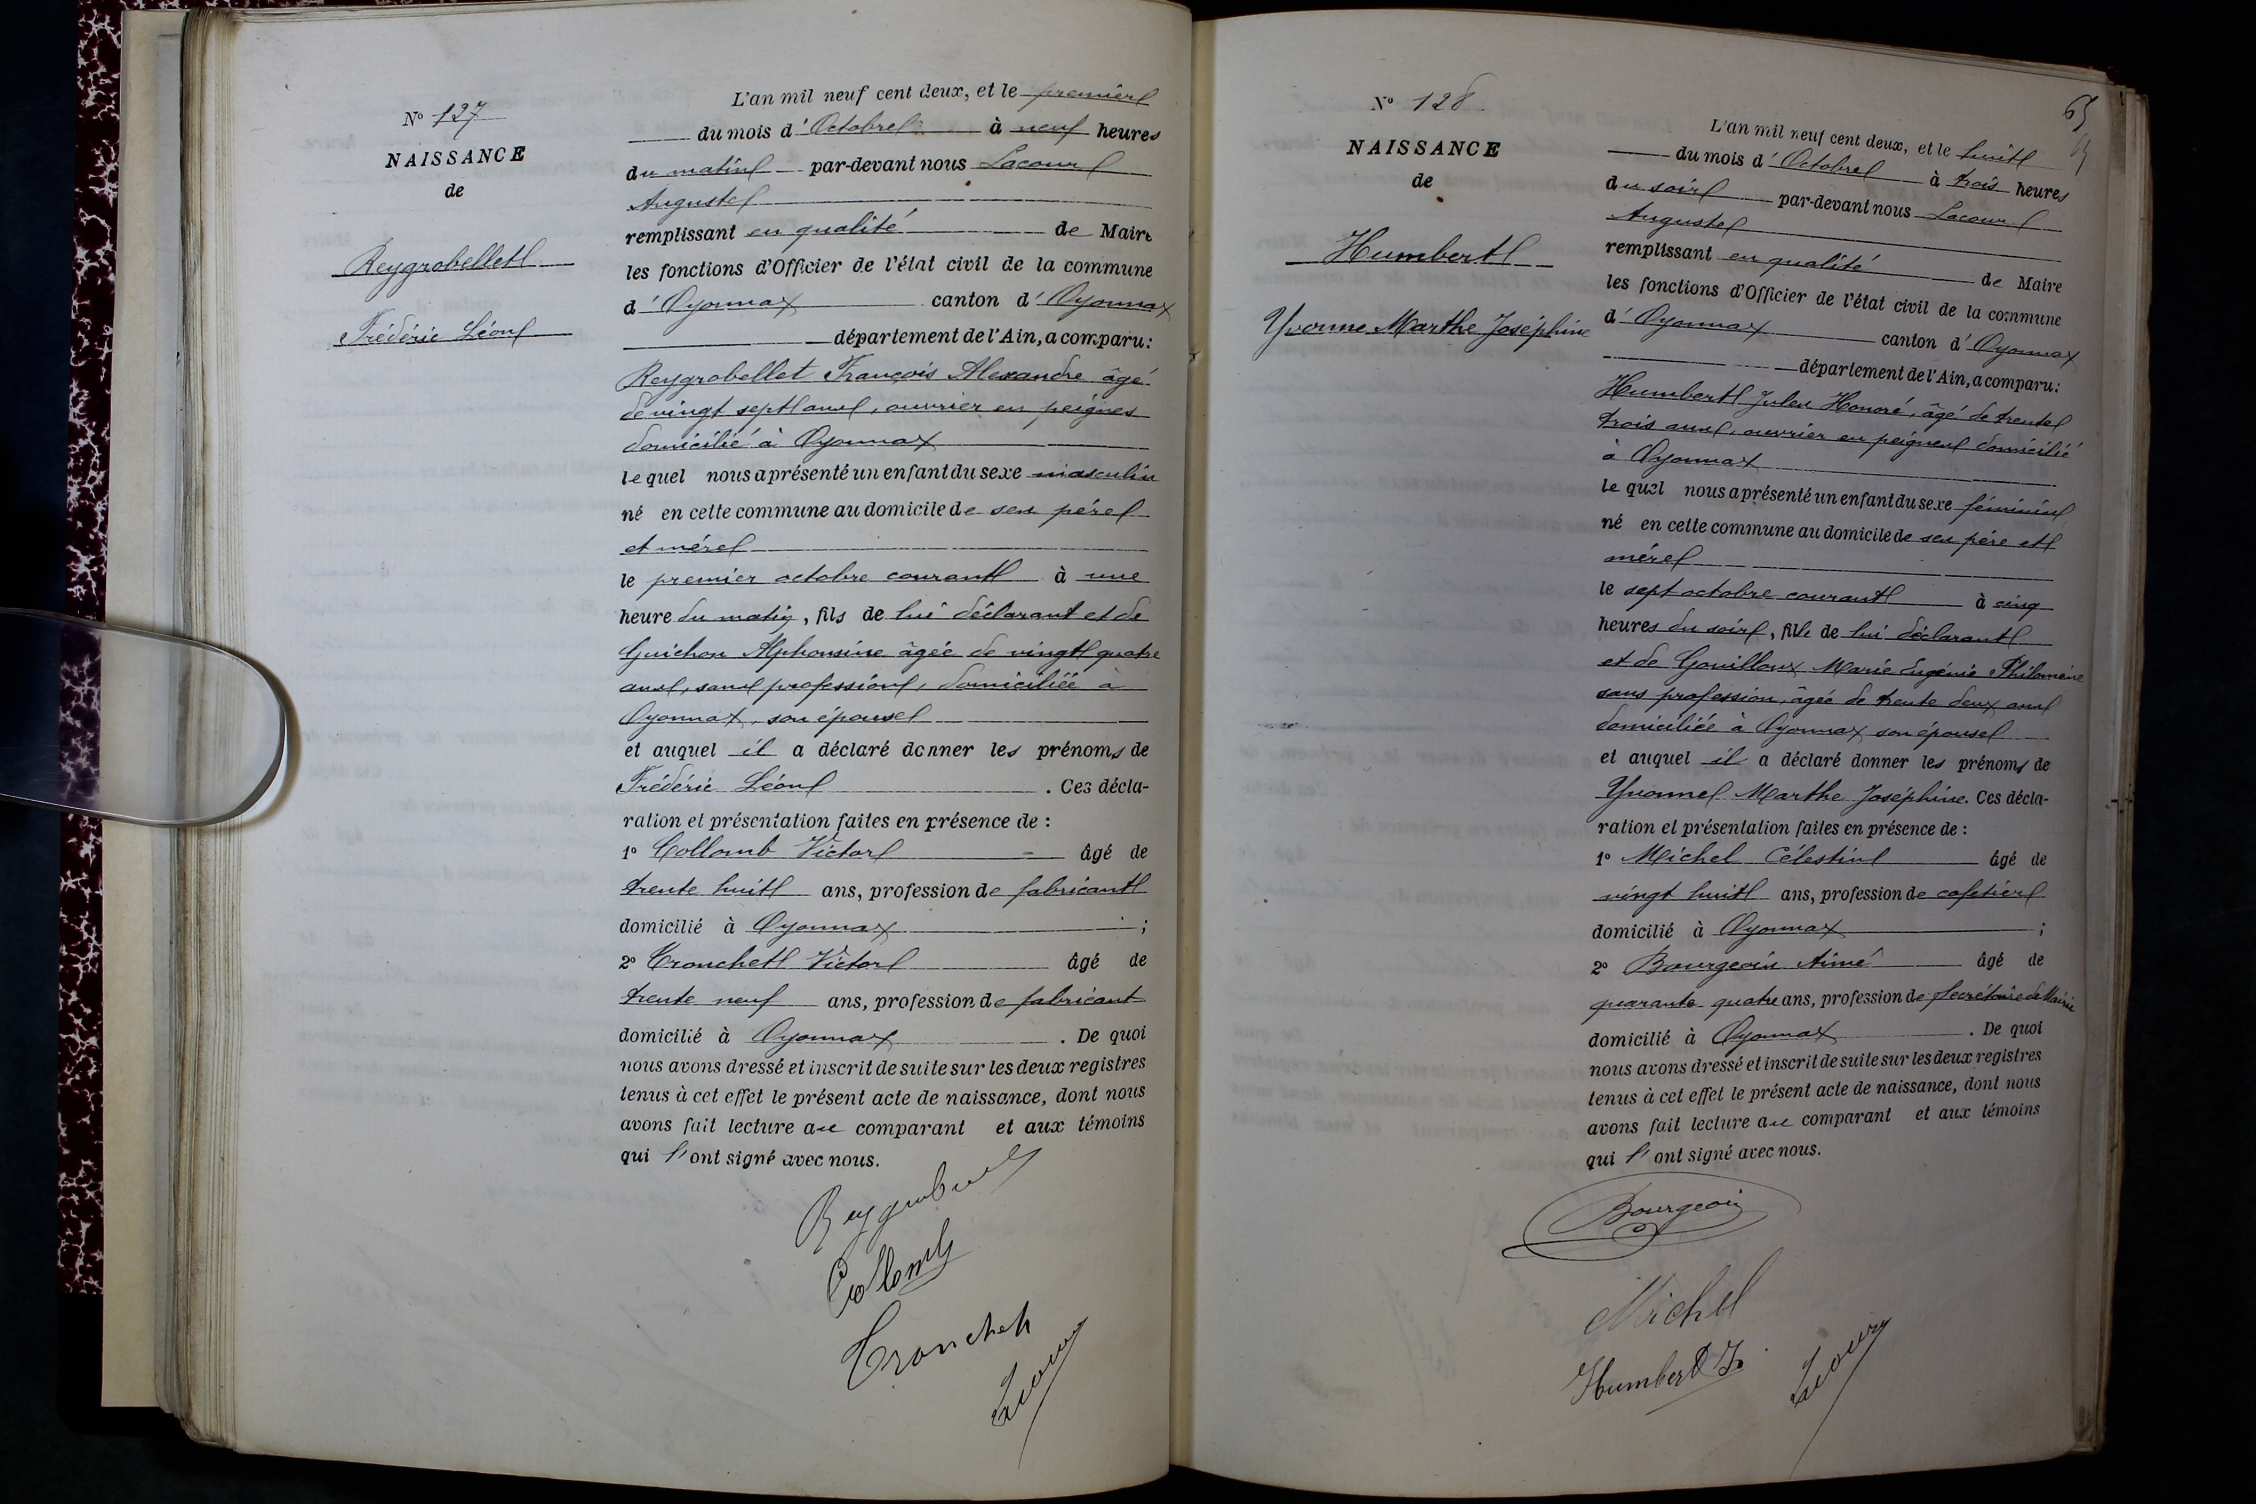 N° 127
NAISSANCE
de
Reygrobellet
Frédéric Léon
L'an mil neuf cent deux, et le premier
du mois d'Octobre à neuf heures
du matin par-devant nous Lacour
Auguste
remplissant en qualité de Maire
les fonctions d'Officier de l'état civil de la commune
d'Oyonnax canton d'Oyonnax
département de l'Ain, a comparu:
Reygrobellet François Alexandre âgé
de vingt sept ans, ouvrier en peignes
domicilié à Oyonnax
lequel nous a présenté un enfant du sexe masculin
né en cette commune au domicile de ses père
et mère
le premier octobre courant à une
heure du matin, fils de lui déclarant et de
Guichon Alphonsine âgée de vingt quatre
ans, sans profession, domiciliée à
Oyonnax, son épouse
et auquel il a déclaré donner les prénoms de
Frédéric Léon. Ces décla-
ration et présentation faites en présence de :
1° Collomb Victor âgé de
trente huit ans, profession de fabricant
domicilié à Oyonnax ;
2° Tronchet Victor âgé de
trente neuf ans, profession de fabricant
domicilié à Oyonnax. De quoi
nous avons dressé et inscrit de suite sur les deux registres
tenus à cet effet le présent acte de naissance, dont nous
avons fait lecture au comparant et aux témoins
qui l'ont signé avec nous.
Collomb
Tronchet
Lacour
65
N° 128
NAISSANCE
de
Humbert
Yvonne Marthe Joséphine
L'an mil neuf cent deux, et le huit
du mois d'Octobre à trois heures
du soir par-devant nous Lacour
Auguste
remplissant en qualité de Maire
les fonctions d'Officier de l'état civil de la commune
d'Oyonnax canton d'Oyonnax
département de l'Ain, a comparu:
Humbert Jules Honoré, âgé de trente
trois ans, ouvrier en peignes domicilié
à Oyonnax
lequel nous a présenté un enfant du sexe féminin
né en cette commune au domicile de ses père et
mère
le sept octobre courant à cinq
heures du soir, fille de lui déclarant
et de Gouilloux Marie Eugénie Philomène
sans profession, âgée de trente deux ans
domiciliée à Oyonnax son épouse
et auquel il a déclaré donner les prénoms de
Yvonne Marthe Joséphine. Ces décla-
ration et présentation faites en présence de :
1° Michel Célestin âgé de
vingt huit ans, profession de cafetier
domicilié à Oyonnax ;
2° Bourgeois Aimé âgé de
quarante quatre ans, profession de Secrétaire de Mairie
domicilié à Oyonnax. De quoi
nous avons dressé et inscrit de suite sur les deux registres
tenus à cet effet le présent acte de naissance, dont nous
avons fait lecture au comparant et aux témoins
qui l'ont signé avec nous.
Bourgeois
Michel
Humbert J.
Lacour